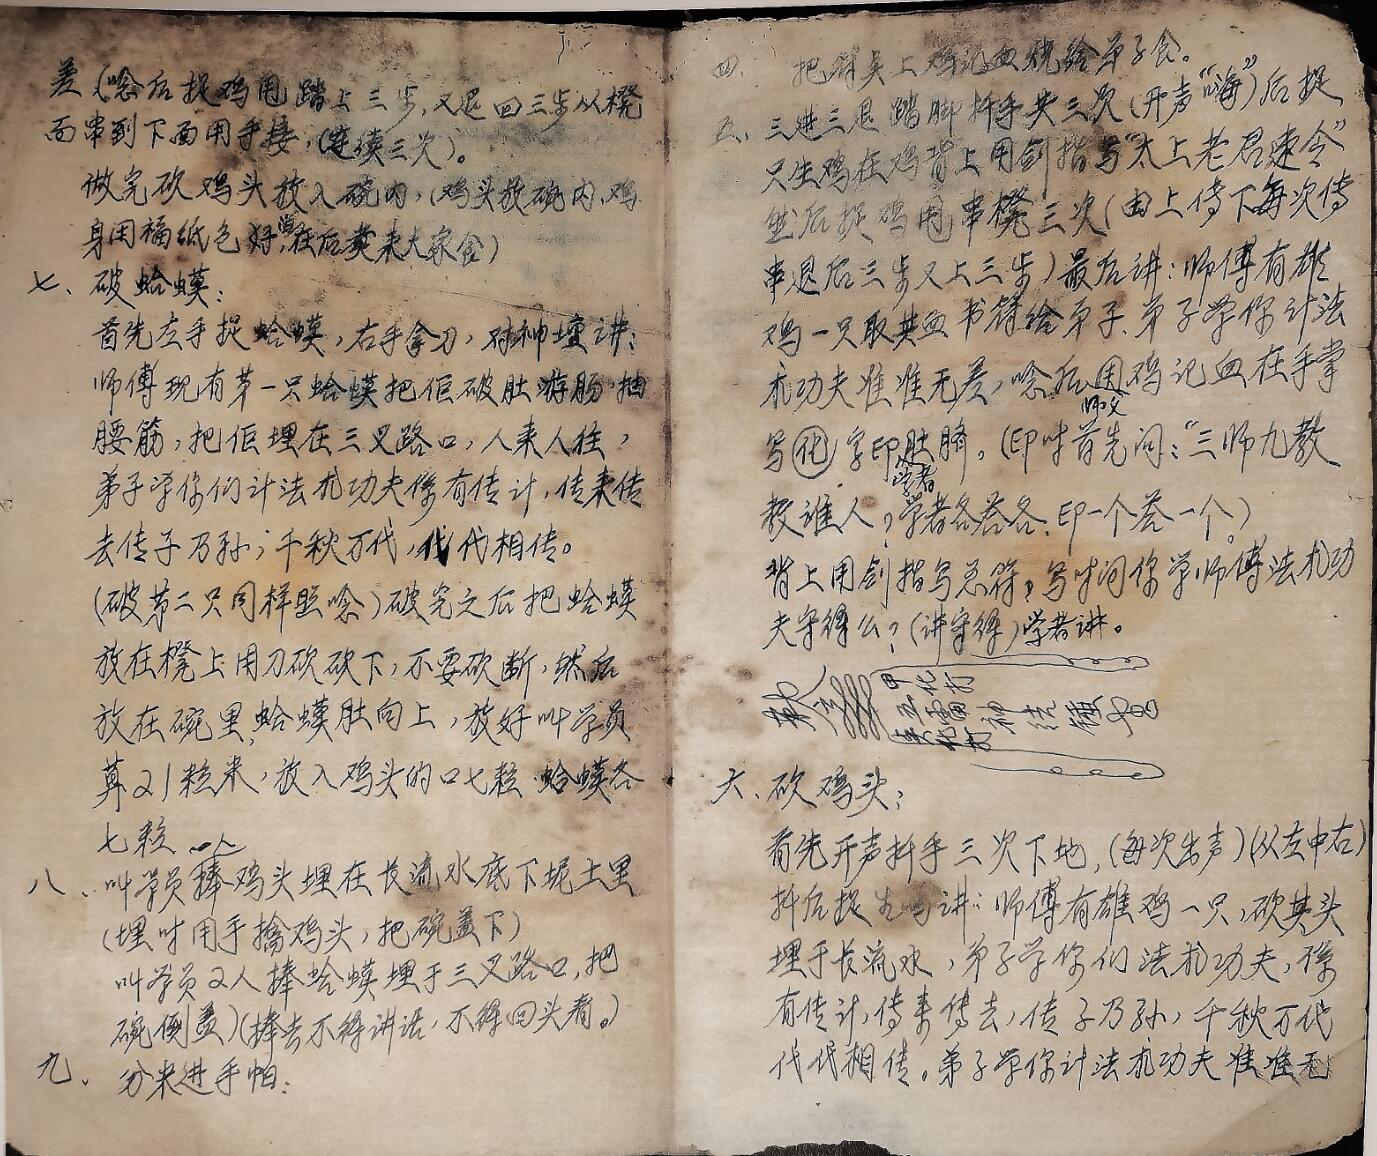 四、把符头上鸡记血烧给弟子食。
五、三进三退踏脚抖手共三次(开声“嗨”)后捉
只生鸡在鸡背上用剑指写“太上老君速令”
然后捉鸡用串櫈三次(由上传下每次传
串退后三步又上三步)最后讲:师傅有雄
鸡一只取其血书符给弟子、弟子学你计法
术功夫准准无差,唸后用鸡记血在手掌
师父
写化字印肚脐。(印时首先问:“三师九教
学者
教谁人?学者各答各、印一个答一个。)
背上用剑指写总符,写时问你学师傅法术功
夫守得么?(讲守得)学者讲。
六、砍鸡头:
首先开声抖手三次下地,(每次出声)(从左中右)
抖后捉 讲:师傅有雄鸡一只,砍其头
埋于长流水,弟子学你们法术功夫,係
有传计,传来传去,传子乃孙,千秋万代
代代相传。弟子学你计法术功夫准准无
差(唸后捉鸡用踏上三步,又退回三步从櫈
面串到下面用手接,(连续三次)。
做完砍鸡头放入碗内,(鸡头放碗内,鸡
身用福纸包好,在后煲来大家食)
七、破蛤蟆:
首先左手捉蛤蟆,右手拿刀,对神坛讲:
师傅现有第一只蛤蟆把佢破肚游肠,抽
腰筋,把佢埋在三叉路口,人来人往,
弟子学你们计法术功夫係有传计,传来传
去传子乃孙,千秋万代,代代相传。
(破第二只同样照唸)破完之后把蛤蟆
放在櫈上用刀砍砍下,不要砍断,然后
放在碗里,蛤蟆肚向上,放好叫学员
算21粒米,放入鸡头的口七粒、蛤蟆各
七粒
八、叫学员捧鸡头埋在长流水底下坭土里
(埋时用手擒鸡头,把碗盖下)
叫学员2人捧蛤蟆埋于三叉路口,把
碗倒盖)(捧去不得讲话,不得回头看。)
九、分米进手帕: